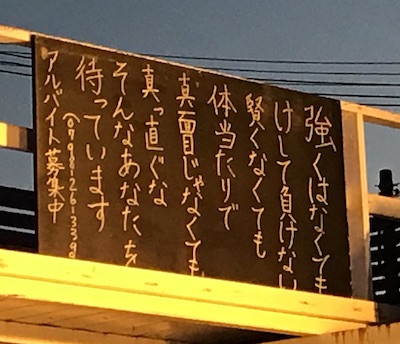 強くはなくても
けして負けない
賢くなくても
体当たりで
真面目じゃなくても
真っ直ぐな
そんなあなたを
待っています
アルバイト募集中
☎0798-26-3396